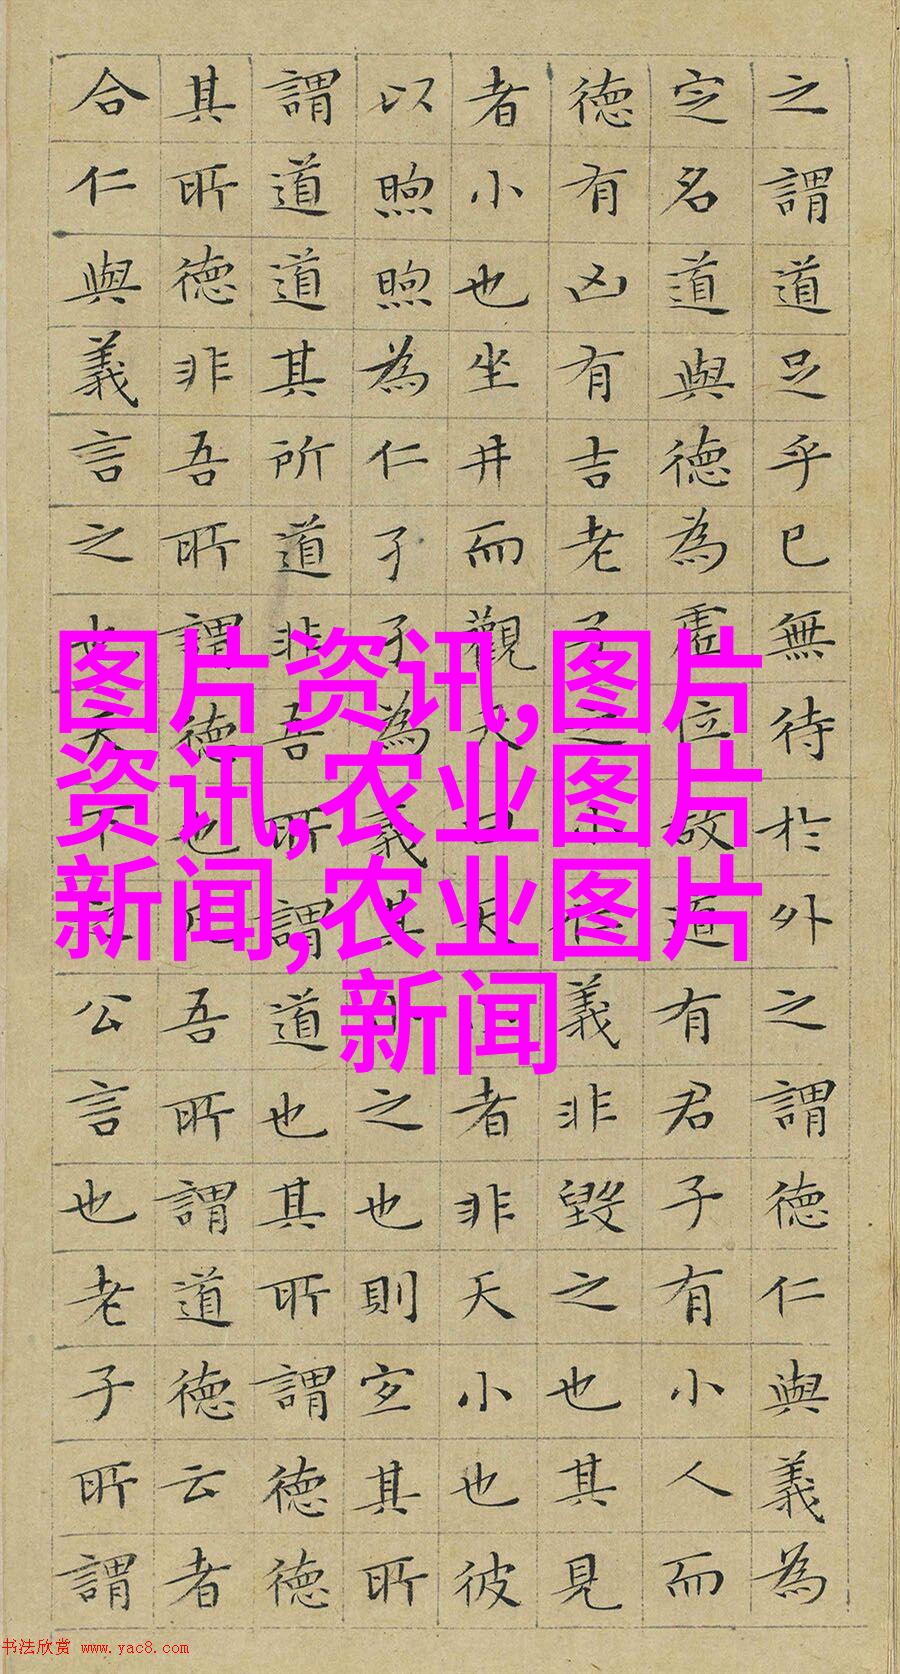 之謂道足乎已無待於外之謂德仁與義為
定名道與德為虛位故道有君子有小人而
德有凶有吉老子之小仁義非毀之也其見
者小也坐井而觀天曰天小者非天小也彼
以煦煦為仁孑孑為義其小之也則宜其所
謂道道其所道非吾所謂道也其所謂德德
其所德非吾所謂德也凡吾所謂道德云者
合仁與義言之也天下之公言也老子所謂
图片资讯,图片
资讯,农业图片
新闻,农业图片
新闻
书法欣赏 www.yac8.com